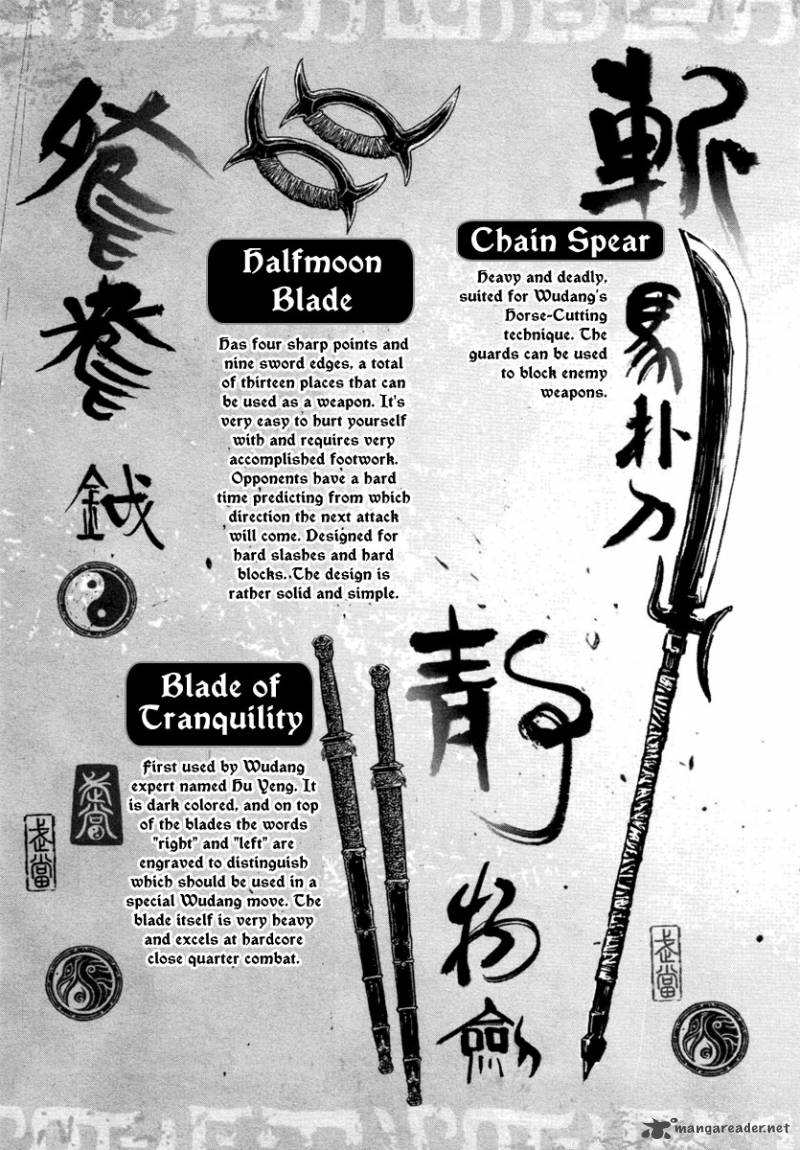 Halfmoon
Blade
Has four sharp points and
nine sword edges, a total
of thirteen places that can
be used as a weapon. It's
very easy to hurt yourself
with and requires very
accomplished footwork.
Opponents have a hard
time predicting from which
direction the next attack
will come. Designed for
hard slashes and hard
blocks. The design is
rather solid and simple.
鉞
斬
馬
朴
刀
Chain Spear
Heavy and deadly,
suited for Wudang's
Horse-Cutting
technique. The
guards can be used
to block enemy
weapons.
Blade of
Tranquility
First used by Wudang
expert named Hu Yeng. It
is dark colored, and on top
of the blades the words
"right" and "left" are
engraved to distinguish
which should be used in a
special Wudang move. The
blade itself is very heavy
and excels at hardcore
close quarter combat.
靜
物
劍
武當
武當
mangareader.net